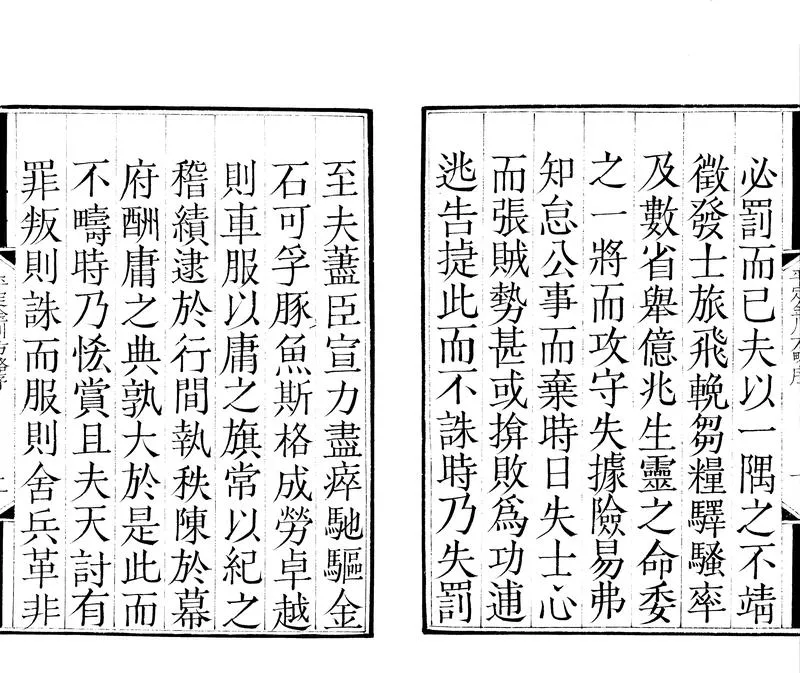 必罰而已夫以一隅之不靖
徵發士旅飛輓芻糧驛騷率
及數省舉億兆生靈之命委
之一將而攻守失據險易弗
知怠公事而棄時日失士心
而張賊勢甚或揜敗爲功逋
逃告捷此而不誅時乃失罰
至夫藎臣宣力盡瘁馳驅金
石可孚豚魚斯格成勞卓越
則車服以庸之旗常以紀之
稽績逮於行間執秩陳於幕
府酬庸之典孰大於是此而
不疇時乃恡賞且夫天討有
罪叛則誅而服則舍兵革非
平定金川方略序
平定金川方略序
二